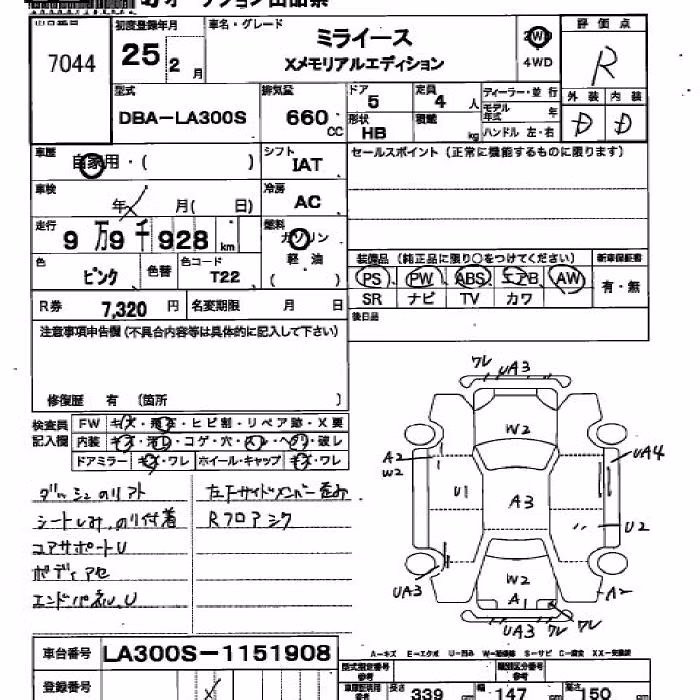 初度登録年月 車名・グレード 評価点
7044 25年 2月 ミライース 2WD R
Xメモリアルエディション 4WD
外装 内装
D D
型式 排気量 ドア 定員 ディーラー・並行
DBA-LA300S 660cc 5 4人 モデル年式 年
形状 積載 ハンドル 左・右
HB kg
車歴 シフト セールスポイント (正常に機能するものに限ります)
自家用・( ) IAT
車検 冷房
年 月( 日) AC
走行 燃料
9万9千928km ガソリン
軽油
( )
色 色替 色コード
ピンク T22
装備品 (純正品に限り○をつけてください) 新車保証書
PS PW ABS エアB AW 有・無
SR ナビ TV カワ
R券 7,320円 名変期限 月 日
後日品
注意事項申告欄 (不具合内容等は具体的に記入して下さい)
修復歴 有 (箇所 )
検査員記入欄 FW キズ・飛石・ヒビ割・リペア跡・X要
内装 キズ・汚レ・コゲ・穴・スレ・ヘタリ・破レ
ドアミラー キズ・ワレ ホイール・キャップ キズ・ワレ
ダッシュのリアト 左下サイドメンバー歪み
シートしみ、のり付着 Rフロアシワ
コアサポートU
ボディアセ
エンドパネルU
ワレ UA3
W2
A2 UA4
W2
U1 A3 U2
UA3 W2 A2
A1
UA3 ワレ ワレ
A-キズ E-エクボ U-凹み W-補修跡 S-サビ C-腐食 XX-交換済
車台番号 LA300S-1151908
型式指定番号 類別区分番号
参考 参考
登録番号 長さ 339 幅 147 高さ 150